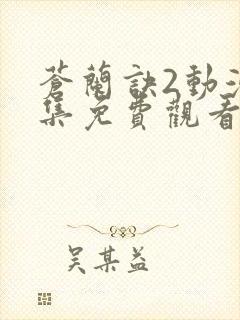 蒼蘭訣2動
集免費觀看
吴某益